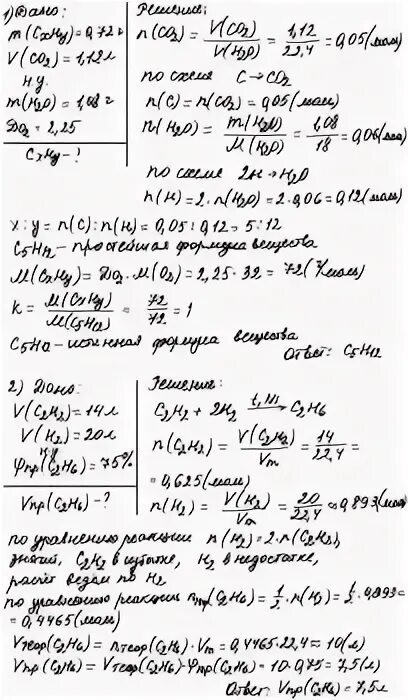 1) Дано:
m(CxHy) = 0,72 г
V(CO2) = 1,12 л
н.у.
m(H2O) = 1,08 г
DO2 = 2,25
CxHy - ?
Решение:
n(CO2) = V(CO2)/V(H2O) = 1,12/22,4 = 0,05 (моль)
по схеме C → CO2
n(C) = n(CO2) = 0,05 (моль)
n(H2O) = m(H2O)/M(H2O) = 1,08/18 = 0,06 (моль)
по схеме 2H → H2O
n(H) = 2·n(H2O) = 2·0,06 = 0,12 (моль)
x : y = n(C) : n(H) = 0,05 : 0,12 = 5 : 12
C5H12 - простейшая формула вещества
M(CxHy) = DO2 · M(O2) = 2,25 · 32 = 72 (г/моль)
k = M(CxHy)/M(C5H12) = 72/72 = 1
C5H12 - истинная формула вещества
Ответ: C5H12
2) Дано:
V(C2H2) = 14 л
V(H2) = 20 л
φпр(C2H6) = 75%
Vпр(C2H6) - ?
Решение:
C2H2 + 2H2 → C2H6
n(C2H2) = V(C2H2)/Vm = 14/22,4 =
= 0,625 (моль)
n(H2) = V(H2)/Vm = 20/22,4 ≈ 0,893 (моль)
по уравнению реакции n(H2) = 2·n(C2H2),
значит, C2H2 в избытке, H2 в недостатке,
расчёт ведём по H2
по уравнению реакции nпр(C2H6) = 1/2·n(H2) = 1/2·0,893 =
= 0,4465 (моль)
Vтеор(C2H6) = nтеор(C2H6)·Vm = 0,4465·22,4 ≈ 10 (л)
Vпр(C2H6) = Vтеор(C2H6)·φпр(C2H6) = 10·0,75 = 7,5 (л)
Ответ: Vпр(C2H6) = 7,5 л